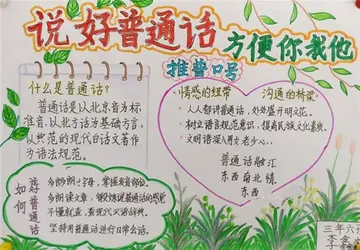 说好普通话
方便你我他
什么是普通话?
普通话是以北京音为标
准音,以北方话为基础方言,
以典范的现代白话文著作
为语法规范。
推普口号
情感的纽带 沟通的桥梁
人人都讲普通话,处处盛开明文花。
树立语言规范意识,提高民族文化素质。
文明语深入男女老少心。
普通话融汇
东西南北情
东西
如何
说好普通话
坚持用普通话进行日常会话。
三年六